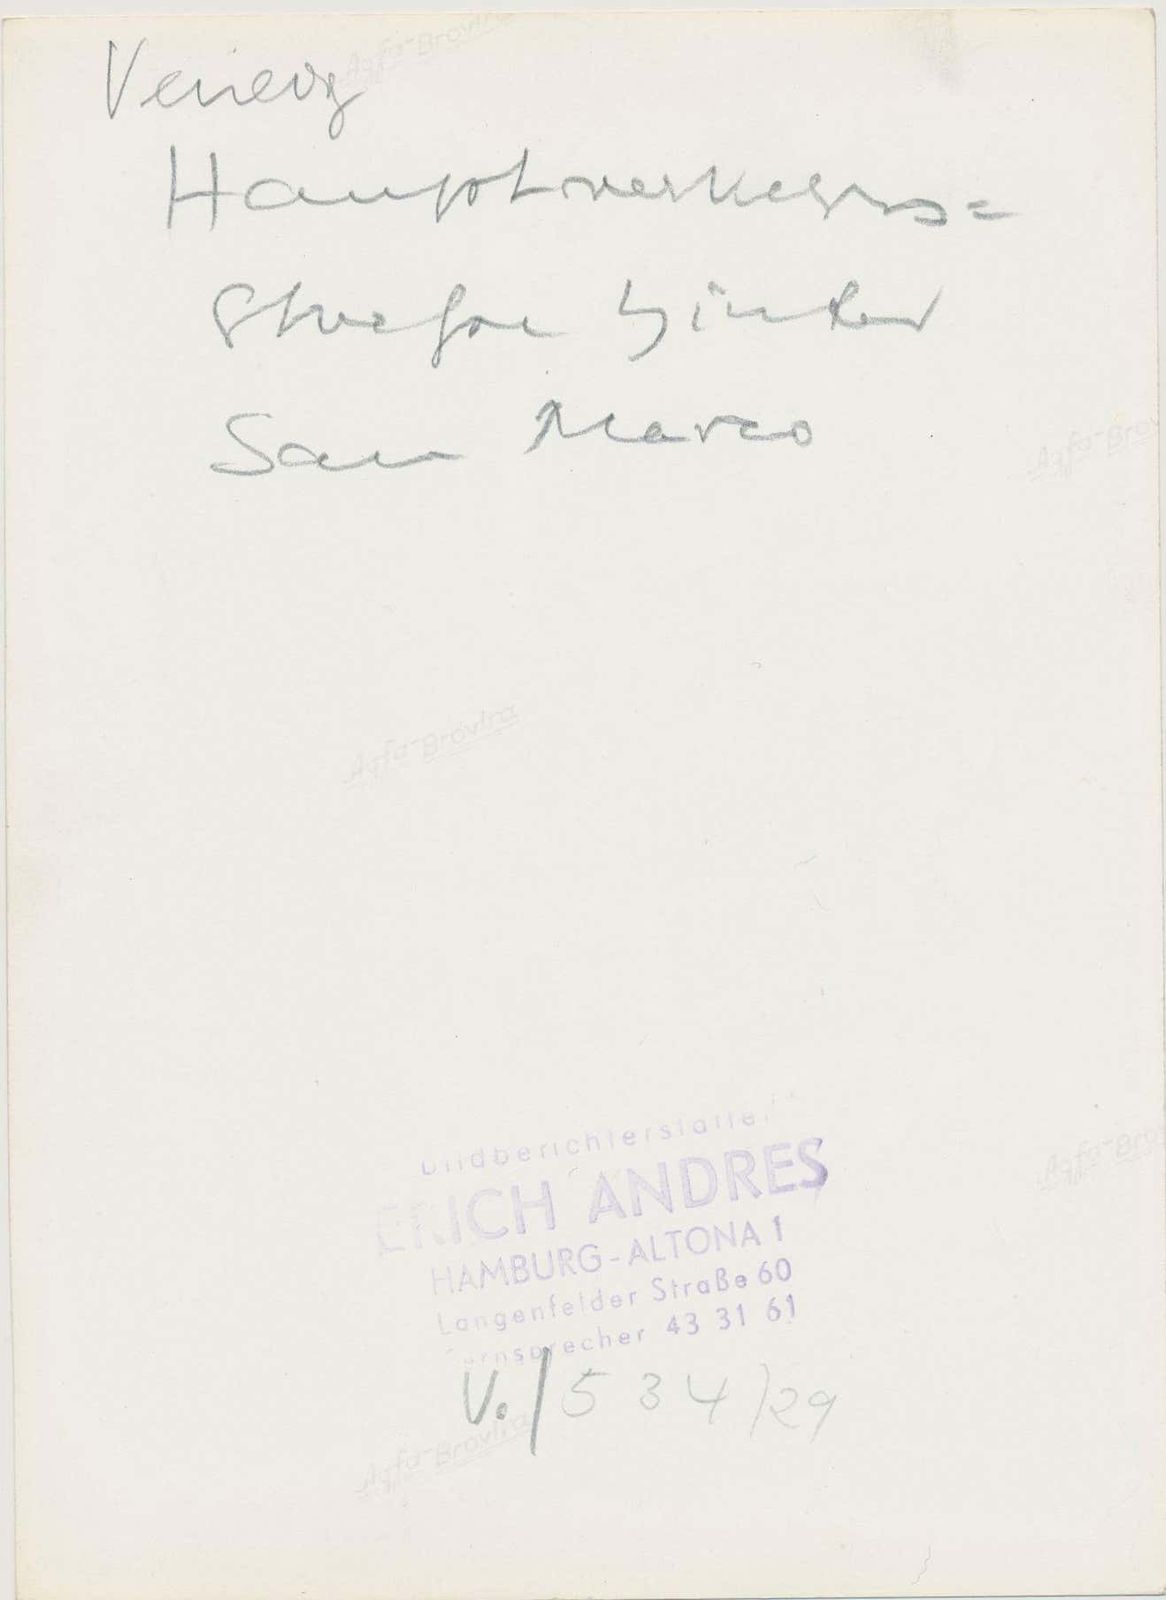 Agfa-Brovira
Venedig
Hauptverkehrs=
strasse hinter
San Marco
Agfa-Brov
Agfa-Brovira
Bildberichterstatter
ERICH ANDRES
HAMBURG-ALTONA 1
Langenfelder Straße 60
Fernsprecher 43 31 61
Agfa-Bro
V./534/29
Agfa-Brovira